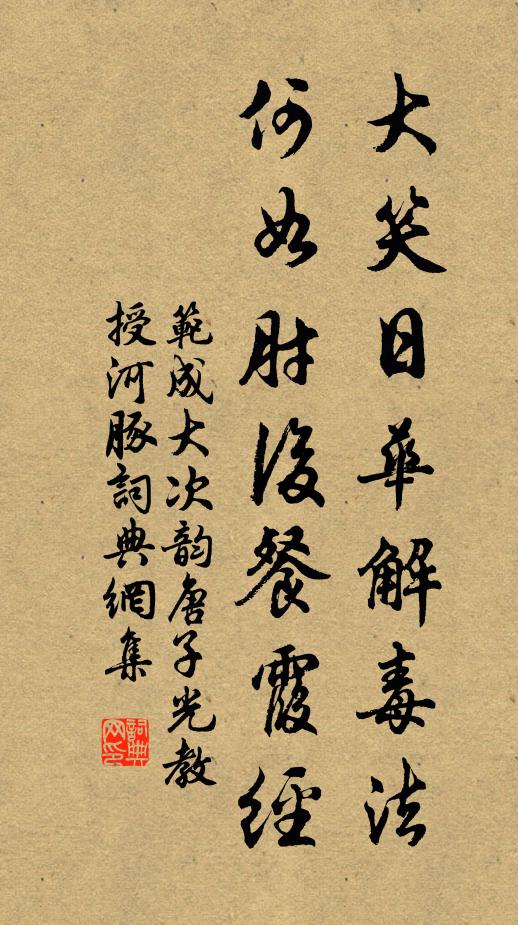 大笑日華解毒法
何如肘後餐霞經
範成大次韵唐子光教
授河豚詞典網集
詞典網印